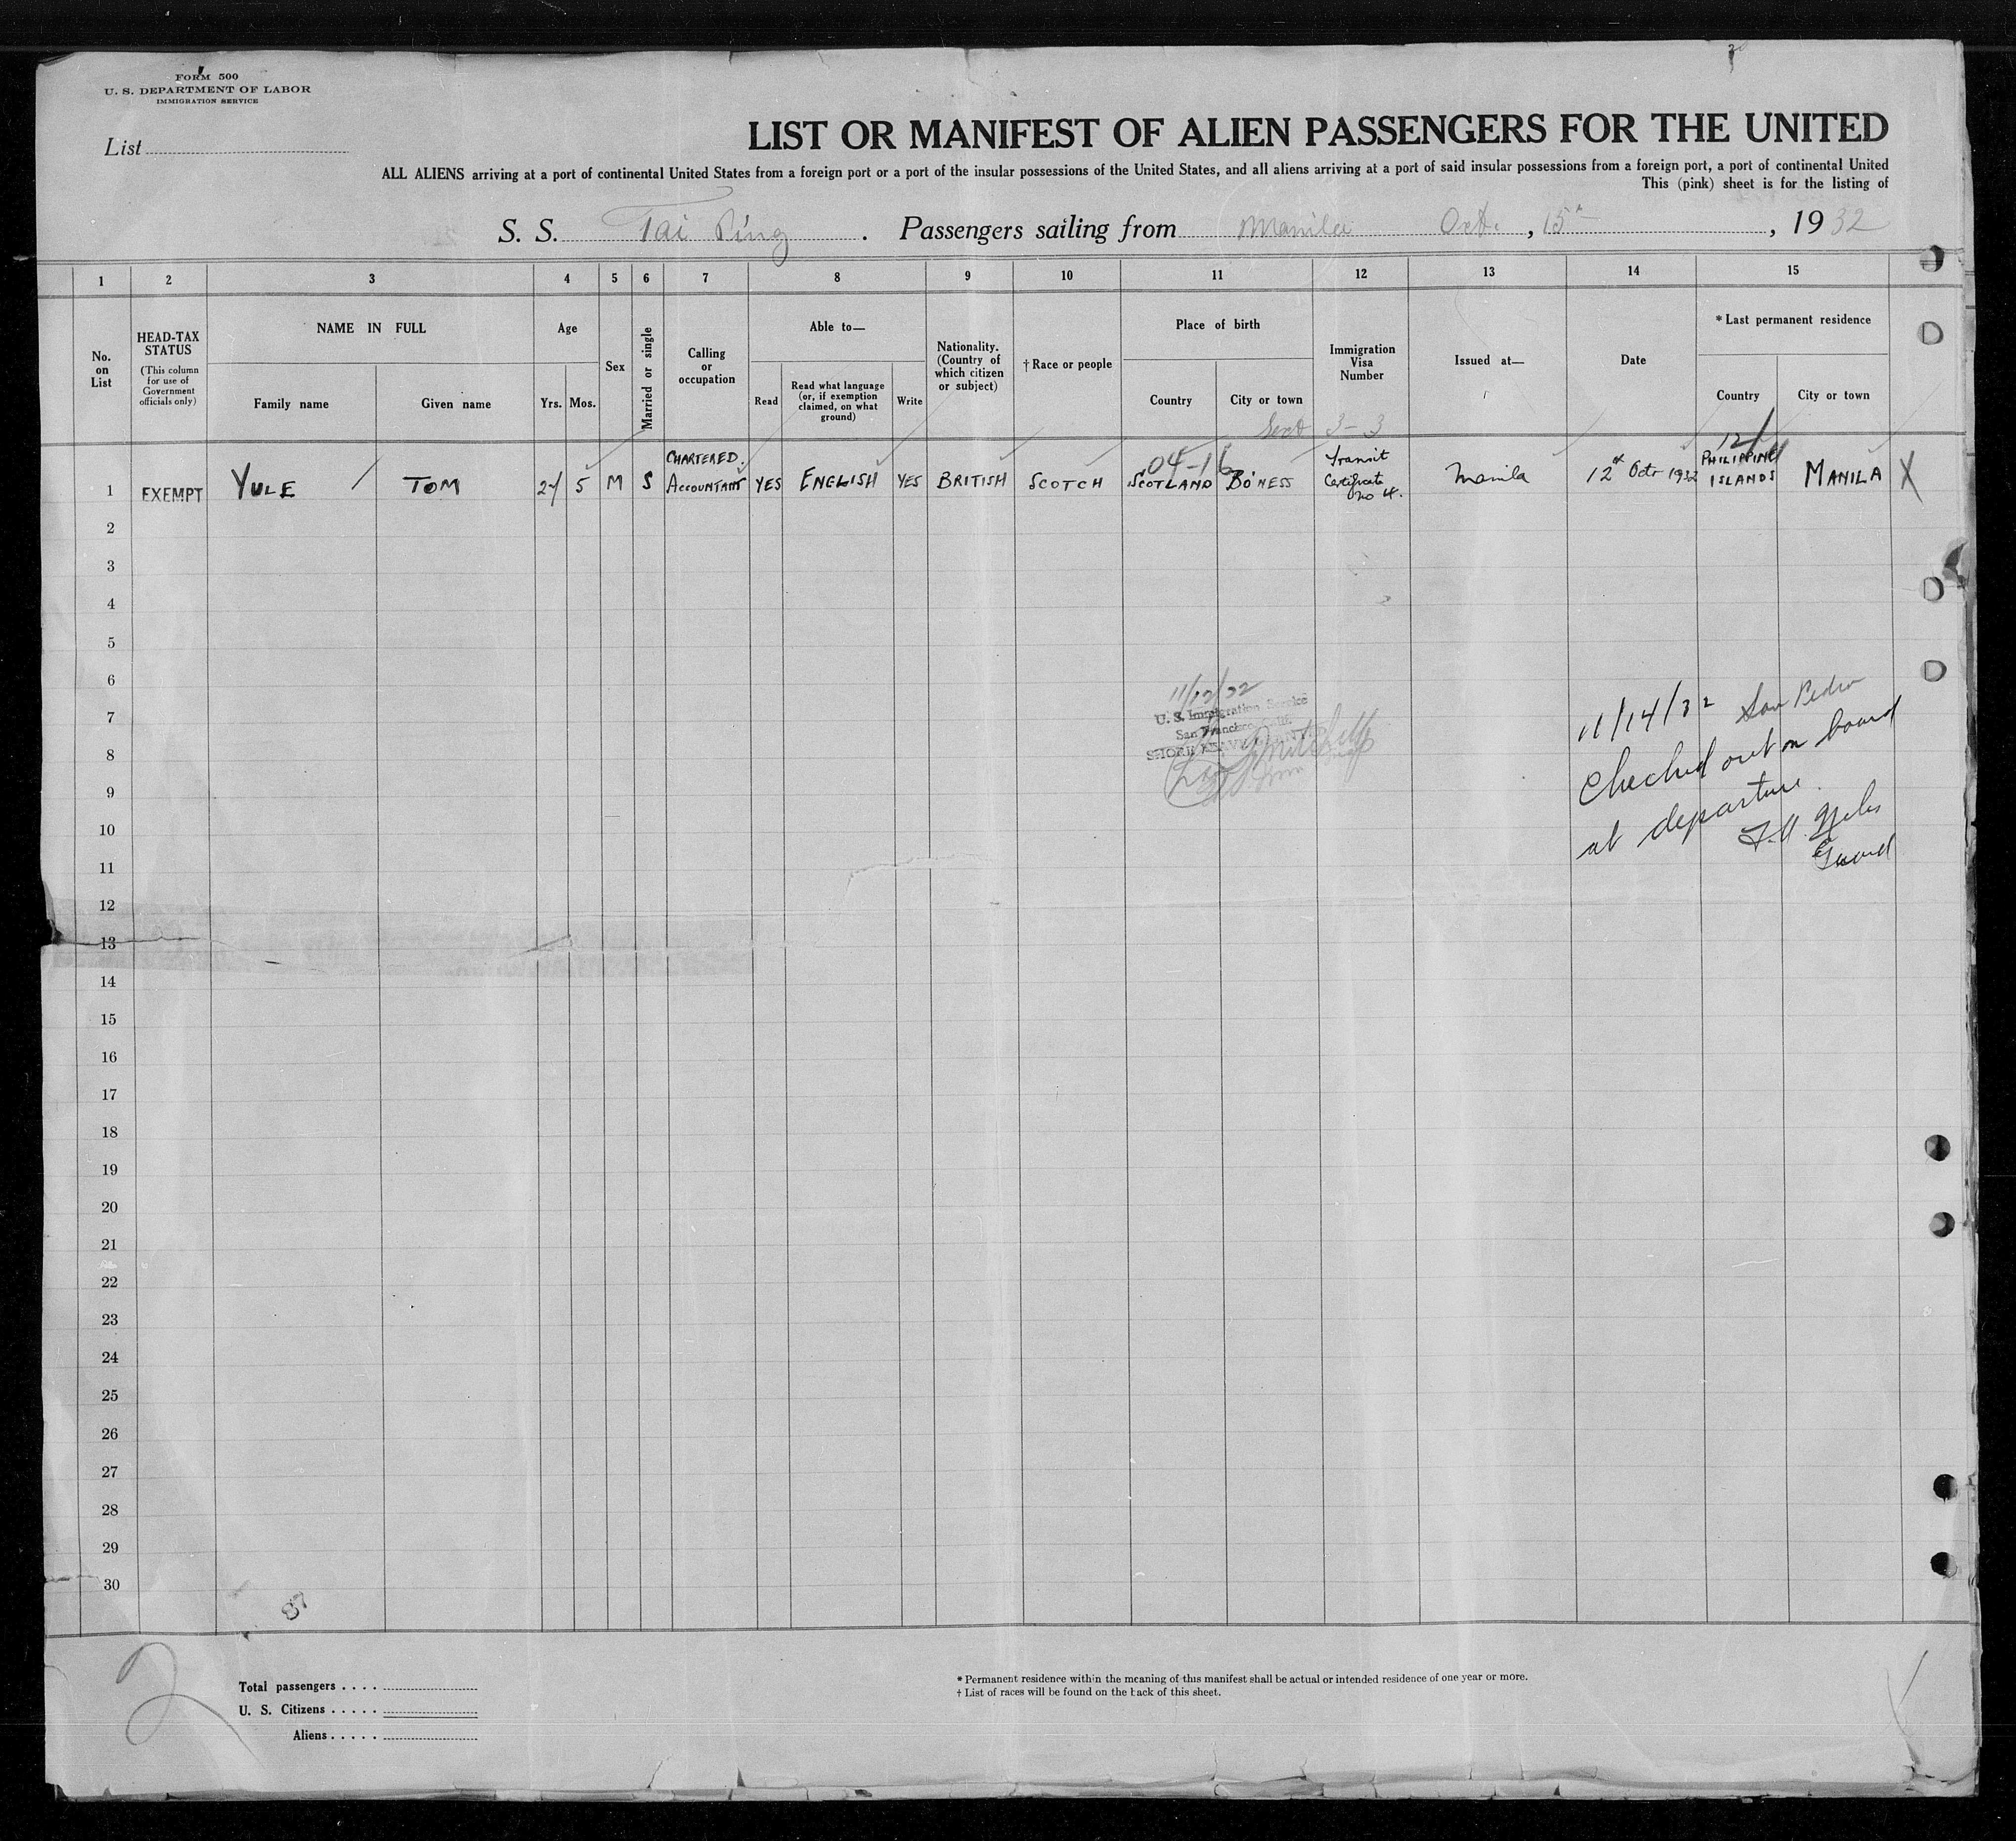 FORM 500
U. S. DEPARTMENT OF LABOR
IMMIGRATION SERVICE
List
LIST OR MANIFEST OF ALIEN PASSENGERS FOR THE UNITED
ALL ALIENS arriving at a port of continental United States from a foreign port or a port of the insular possessions of the United States, and all aliens arriving at a port of said insular possessions from a foreign port, a port of continental United
This (pink) sheet is for the listing of
S. S. Tai Ping . Passengers sailing from Manila Oct. , 15th , 1932
1 2 3 4 5 6 7 8 9 10 11 12 13 14 15
No. on List
HEAD-TAX STATUS
(This column for use of Government officials only)
NAME IN FULL
Family name
Given name
Age
Yrs.
Mos.
Sex
Married or single
Calling or occupation
Able to—
Read
Read what language (or, if exemption claimed, on what ground)
Write
Nationality. (Country of which citizen or subject)
† Race or people
Place of birth
Country
City or town
Immigration Visa Number
Issued at—
Date
* Last permanent residence
Country
City or town
Sect 3-3
04-16
1 EXEMPT YULE / TOM 24 5 M S CHARTERED. ACCOUNTANT YES ENGLISH YES BRITISH SCOTCH SCOTLAND BO'NESS Transit Certificate No 4. Manila 12th Octr 1932 PHILIPPINE ISLANDS MANILA X
2
3
4
5
6
7
8
9
10
11
12
13
14
15
16
17
18
19
20
21
22
23
24
25
26
27
28
29
30
11/12/32
U. S. Immigration Service
San Francisco, Calif.
11/14/32 San Pedro
Checked out on board
at departure.
Guard
87
2
Total passengers . . . .
U. S. Citizens . . . . .
Aliens . . . . .
* Permanent residence within the meaning of this manifest shall be actual or intended residence of one year or more.
† List of races will be found on the back of this sheet.